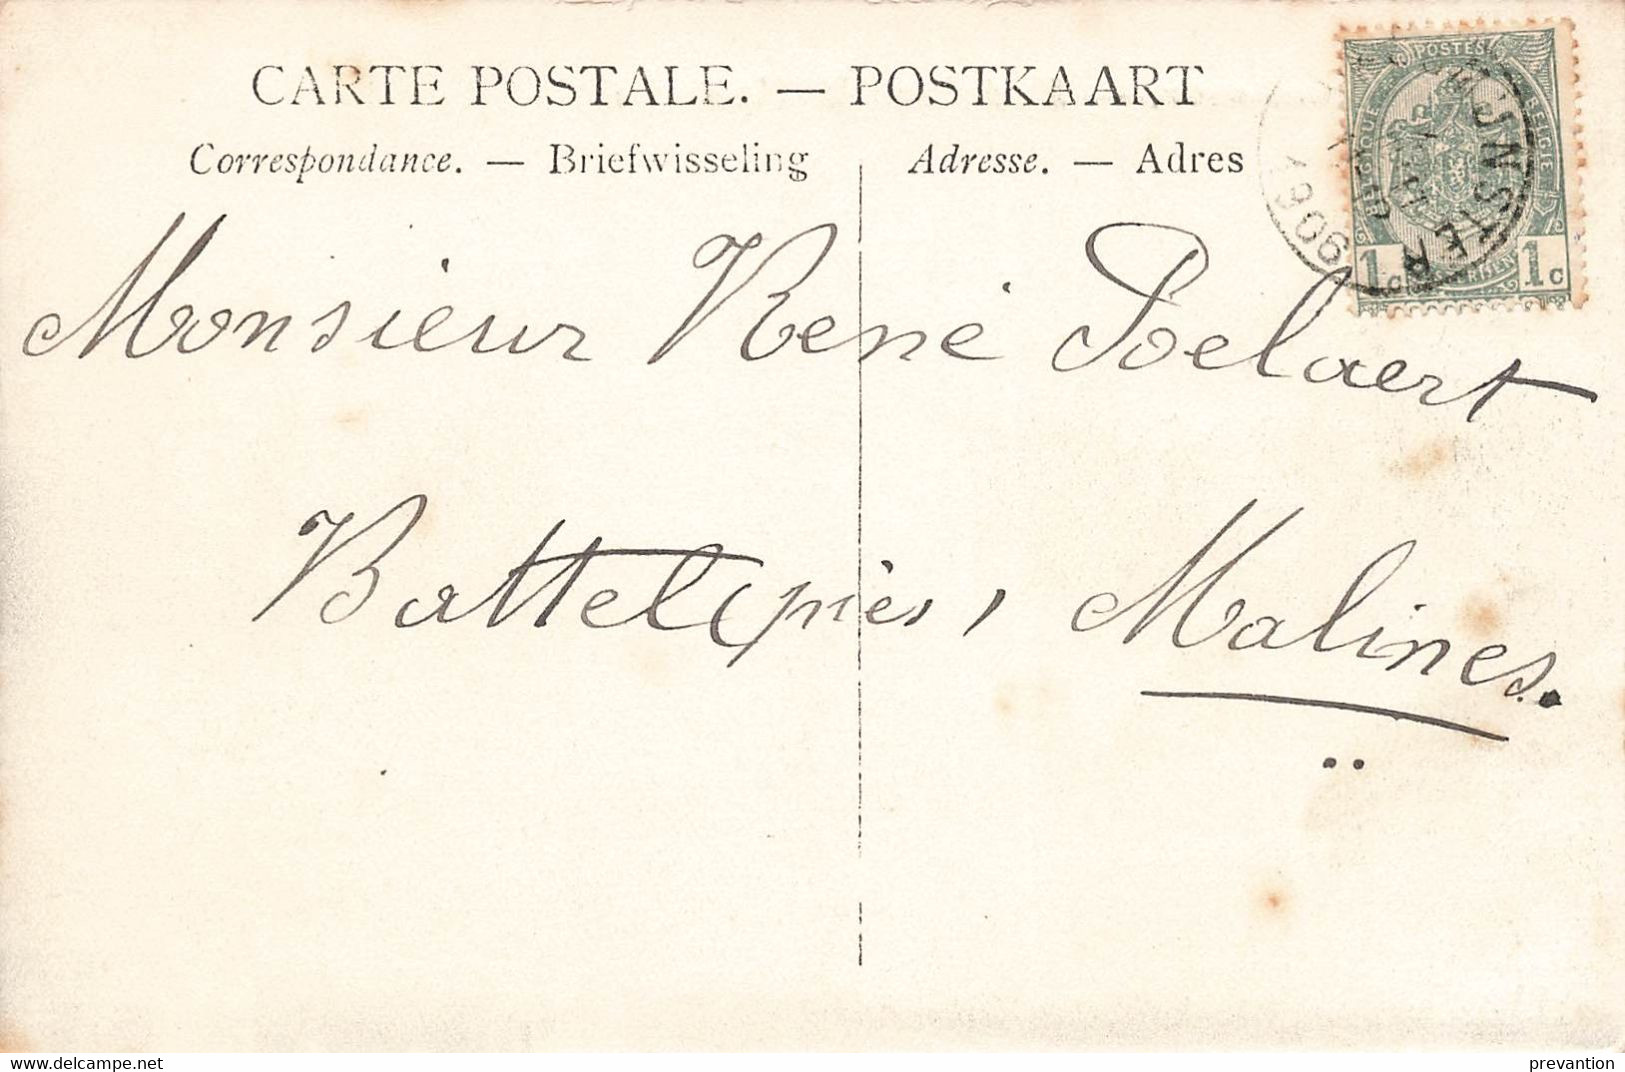 CARTE POSTALE. — POSTKAART
Correspondance. — Briefwisseling
Adresse. — Adres
POSTES
BELGIQUE
BELGIE
1c 1c
1906
Monsieur René Poelaert
Battel (près), Malines.
www.delcampe.net
prevantion